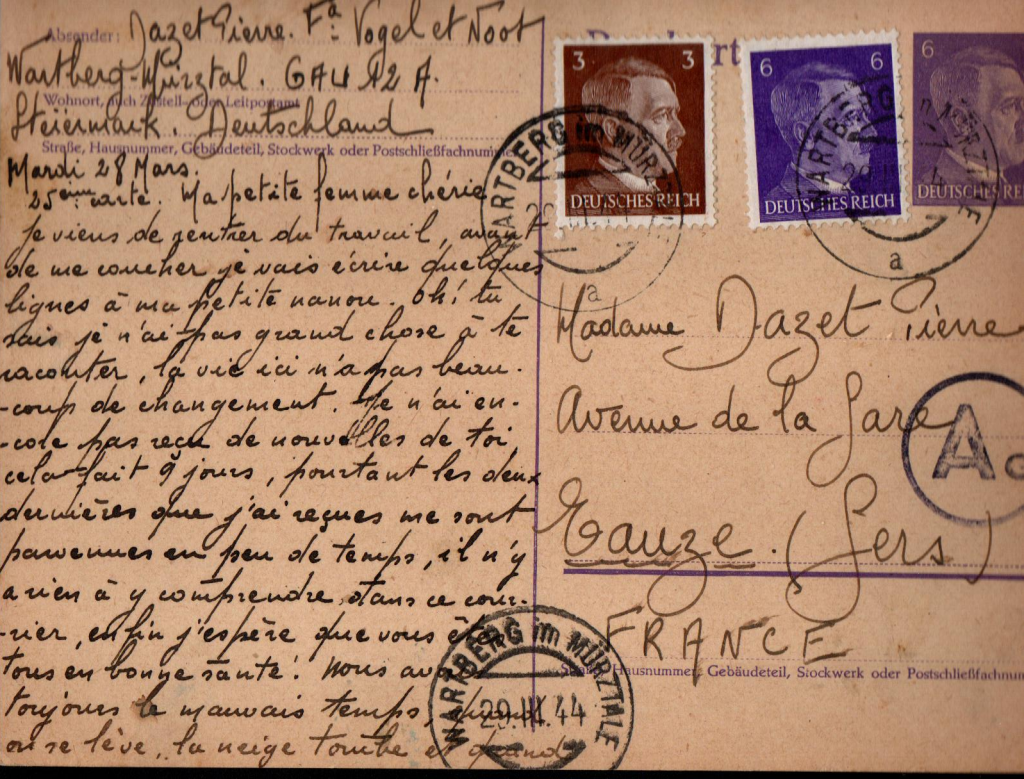 Absender: Dazet Pierre. Fa: Vogel et Noot
Wartberg-Mürztal. GAU 12 A.
Wohnort, auch Zustell- oder Leitpostamt
Steiermark. Deutschland
Straße, Hausnummer, Gebäudeteil, Stockwerk oder Postschließfachnummer
Mardi 28 Mars.
25ème carte. Ma petite femme chérie
Je viens de rentrer du travail, avant
de me coucher je vais écrire quelques
lignes à ma petite nanou. Oh! tu
sais je n'ai pas grand chose à te
raconter, la vie ici n'a pas beau-
-coup de changement. Je n'ai en-
-core pas reçu de nouvelles de toi,
cela fait 9 jours, pourtant les deux
dernières que j'ai reçues me sont
parvenues en peu de temps, il n'y
a rien à y comprendre dans ce cour-
-rier, enfin j'espère que vous êtes
tous en bonne santé! Nous avons
toujours le mauvais temps, quand
on se lève, la neige tombe et quand
3 3
DEUTSCHES REICH
6 6
DEUTSCHES REICH
6
DEUTSCHES REICH
WARTBERG im MÜRZTALE
a
WARTBERG im MÜRZTALE
a
Madame Dazet Pierre
Avenue de la Gare
Eauze. (Gers)
FRANCE
Hausnummer, Gebäudeteil, Stockwerk oder Postschließfachnum
A
WARTBERG im MÜRZTALE
29.III.44